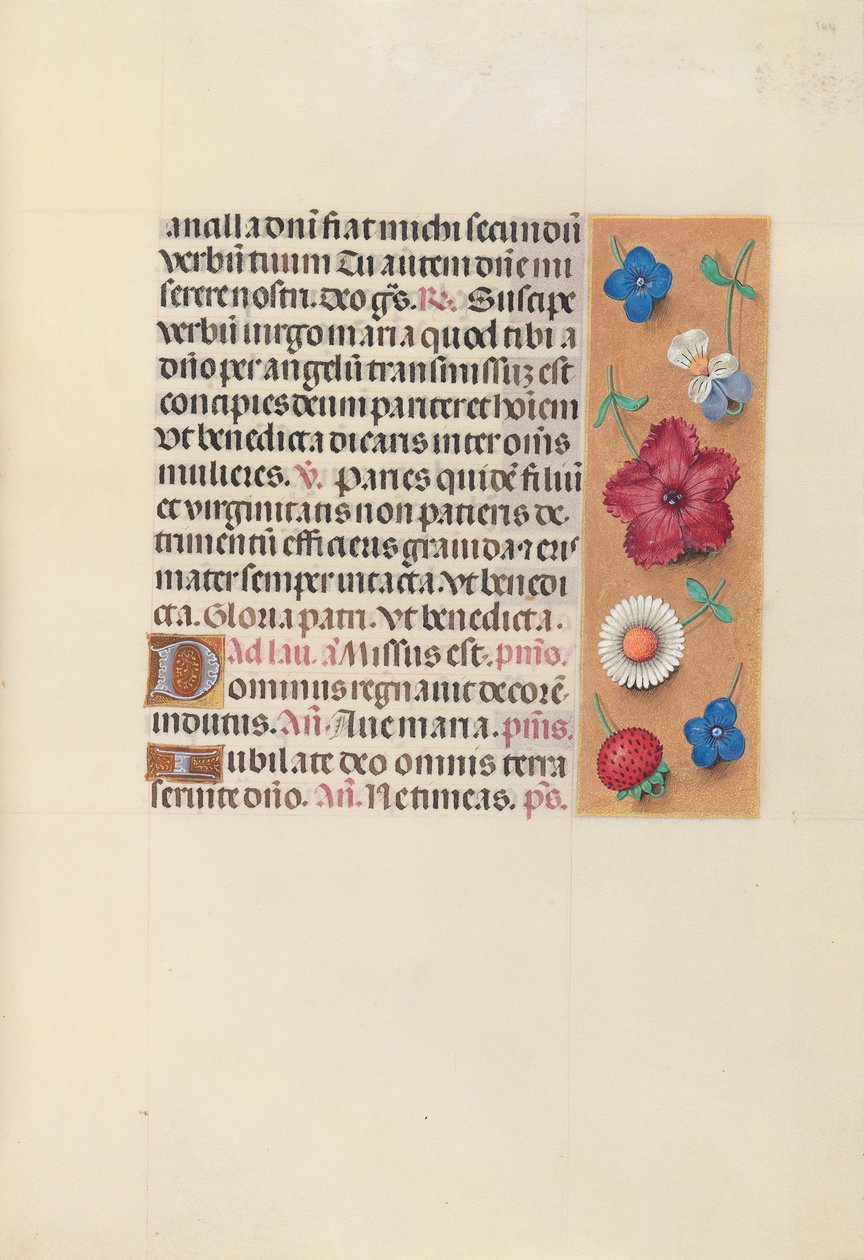 164
ancilla dnī fiat michi secundū
verbū tuum Tu autem dn̄e mi
serere nostri. deo gr̄s. R̄. Suscipe
verbū virgo maria quod tibi a
dn̄o per angelū transmissuꝫ est
concipies deum pariter et hoīem
Vt benedicta dicaris inter om̄s
mulieres. v̄. Paries quidē filiū
et virginitatis non patieris de-
trimentū efficieris grauida ⁊ eris
mater semper intacta. Vt benedi
cta. Gloria patri. Vt benedicta.
Ad lau. ā Missus est. pmo.
Dominus regnauit decorē
indutus. An̄. Aue maria. pm̄s.
Iubilate deo omnis terra
seruite dn̄o. An̄. Ne timeas. ps̄.